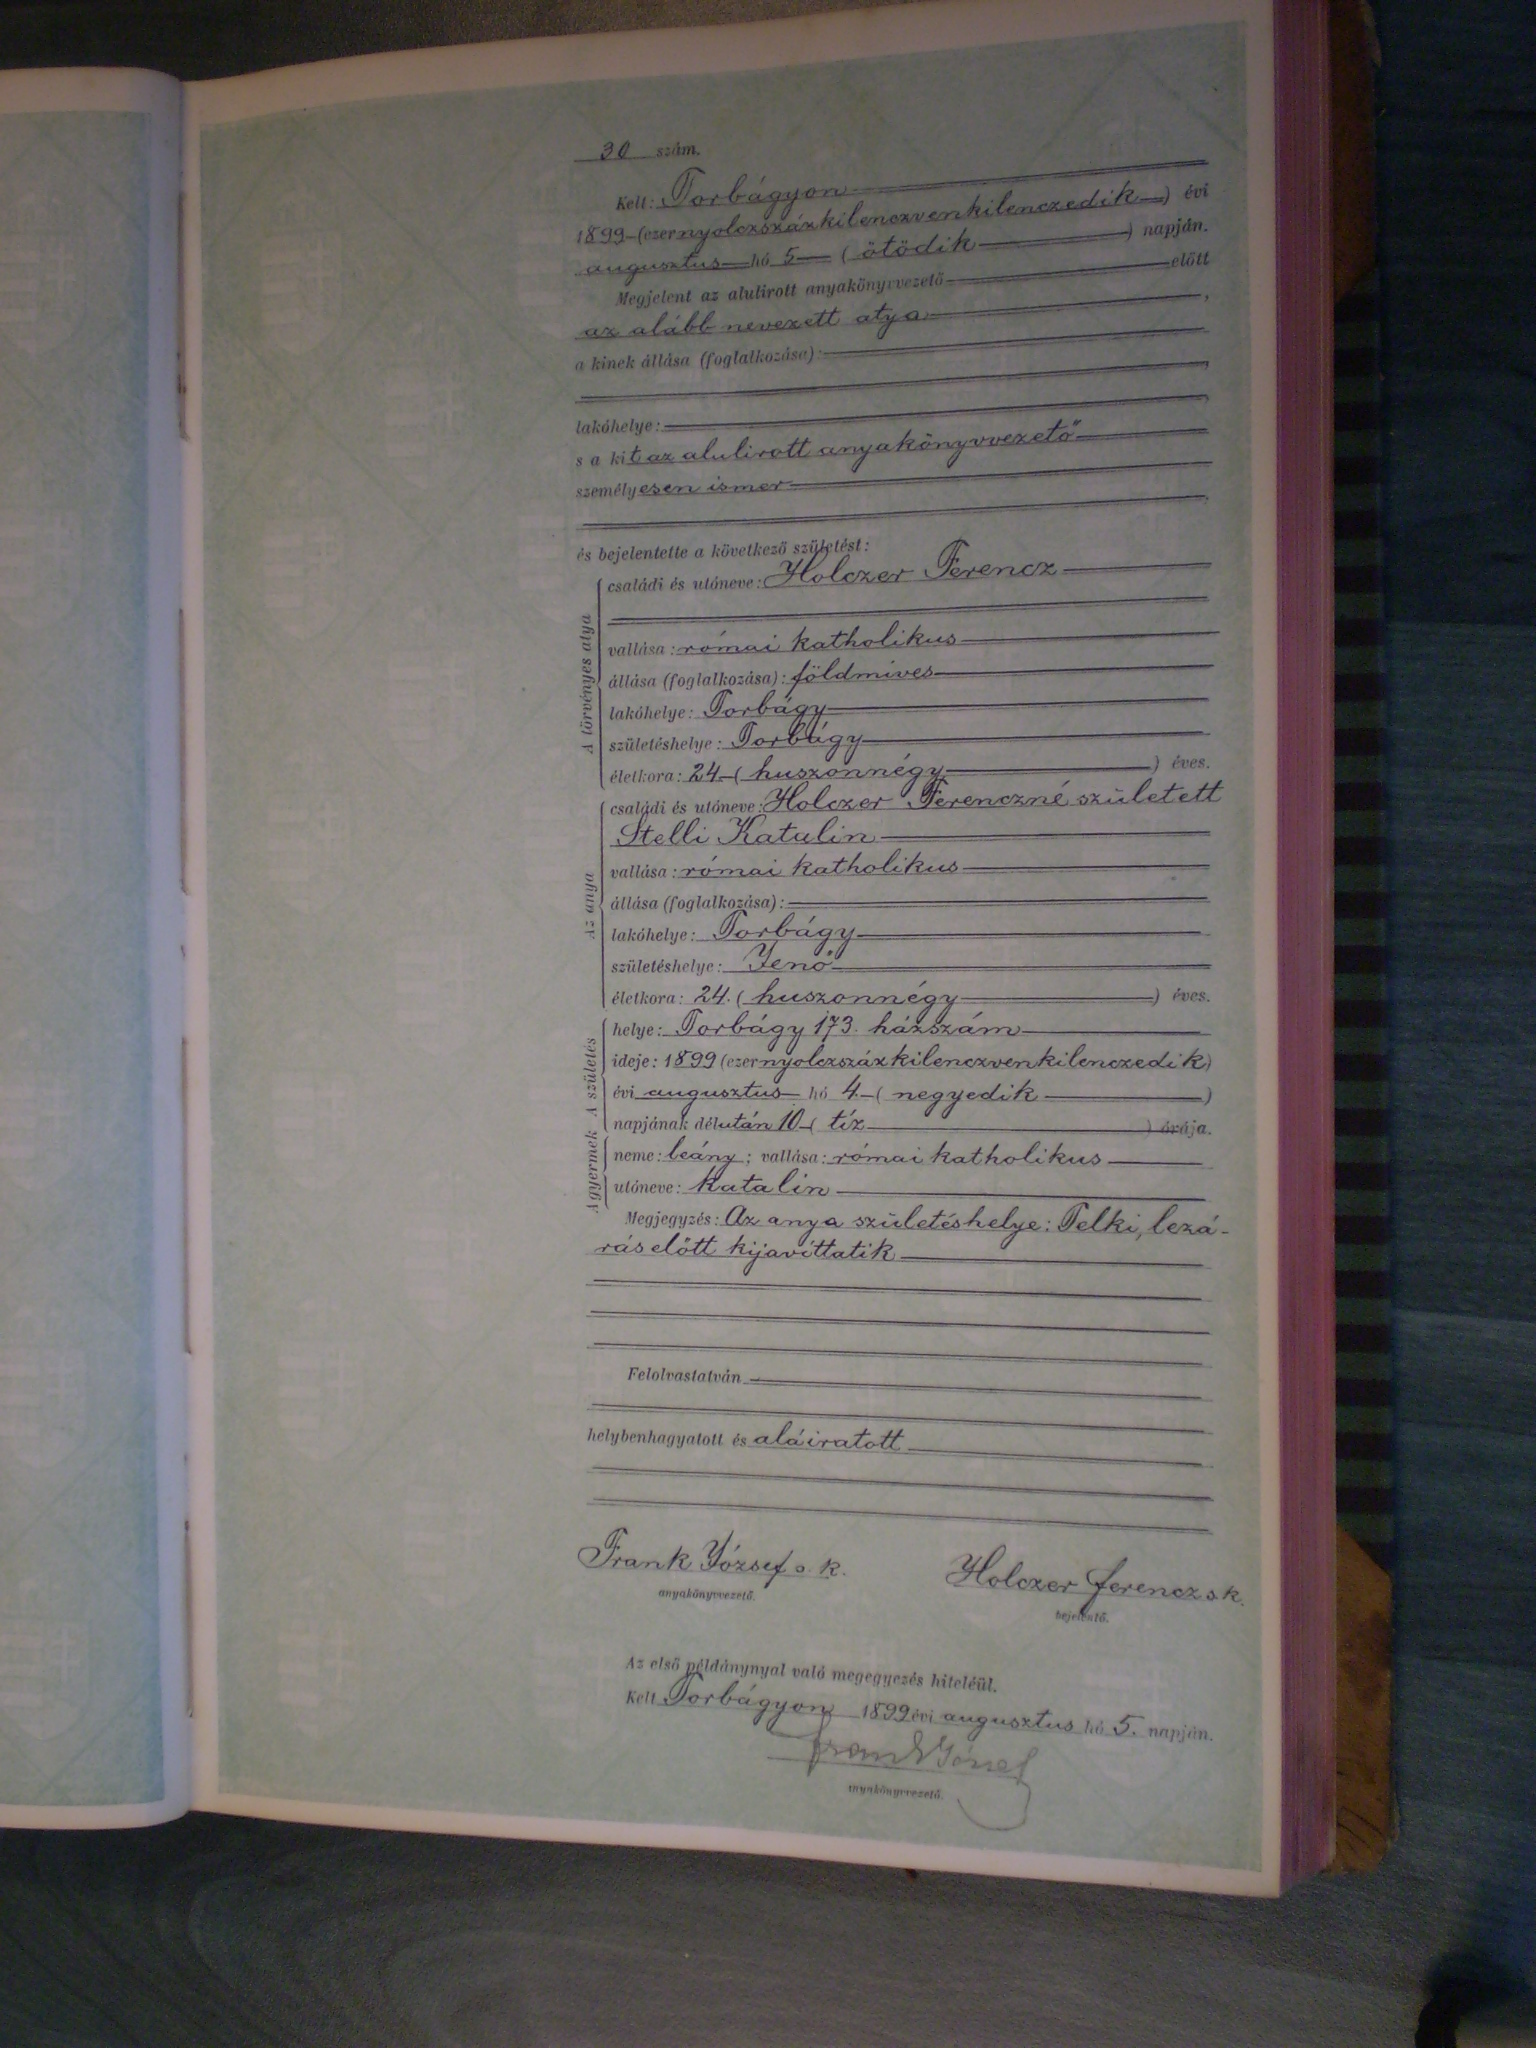 30 szám.
Kelt: Torbágyon
1899 (ezernyolczszázkilenczvenkilenczedik) évi
augusztus hó 5 (ötödik) napján.
Megjelent az alulirott anyakönyvvezető előtt
az alább nevezett atya,
a kinek állása (foglalkozása):
lakóhelye:
s a kit az alulirott anyakönyvvezető
személyesen ismer
és bejelentette a következő születést:
A törvényes atya
családi és utóneve: Holczer Ferencz
vallása: római katholikus
állása (foglalkozása): földmives
lakóhelye: Torbágy
születéshelye: Torbágy
életkora: 24 (huszonnégy) éves.
Az anya
családi és utóneve: Holczer Ferenczné született
Stelli Katalin
vallása: római katholikus
állása (foglalkozása):
lakóhelye: Torbágy
születéshelye: Jenő
életkora: 24. (huszonnégy) éves.
A születés
helye: Torbágy 173. házszám
ideje: 1899 (ezernyolczszázkilenczvenkilenczedik)
évi augusztus hó 4 (negyedik)
napjának délután 10 (tíz) órája.
A gyermek
neme: leány; vallása: római katholikus
utóneve: Katalin
Megjegyzés: Az anya születéshelye: Telki, lezá-
rás előtt kijavíttatik
Felolvastatván
helybenhagyatott és aláiratott
Frank József s. k.
Holczer Ferencz s k.
anyakönyvvezető.
bejelentő.
Az első példánynyal való megegyezés hiteléül.
Kelt Torbágyon 1899 évi augusztus hó 5. napján.
Frank József
anyakönyvvezető.